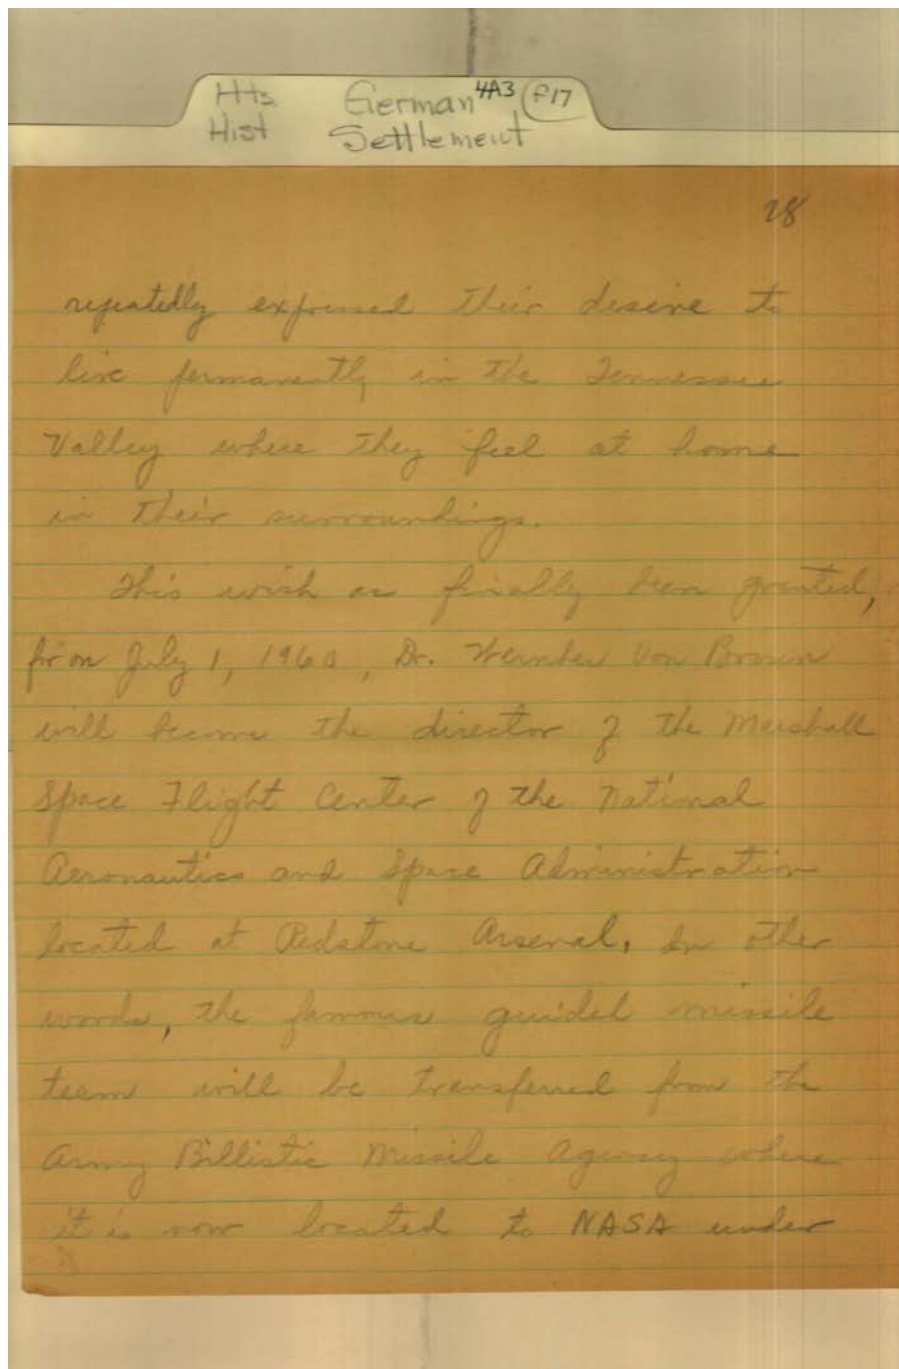 Hts. German 4A3 F17
Hist Settlement
28
repeatedly expressed their desire to
live permanently in the Tennessee
Valley where they feel at home
in their surroundings.
This wish as finally been granted,
for on July 1, 1960, Dr. Wernher Von Braun
will become the director of the Marshall
Space Flight Center of the National
Aeronautics and Space Administration
located at Redstone Arsenal. In other
words, the famous guided missile
team will be transferred from the
Army Billistic Missile Agency where
it is now located to NASA under